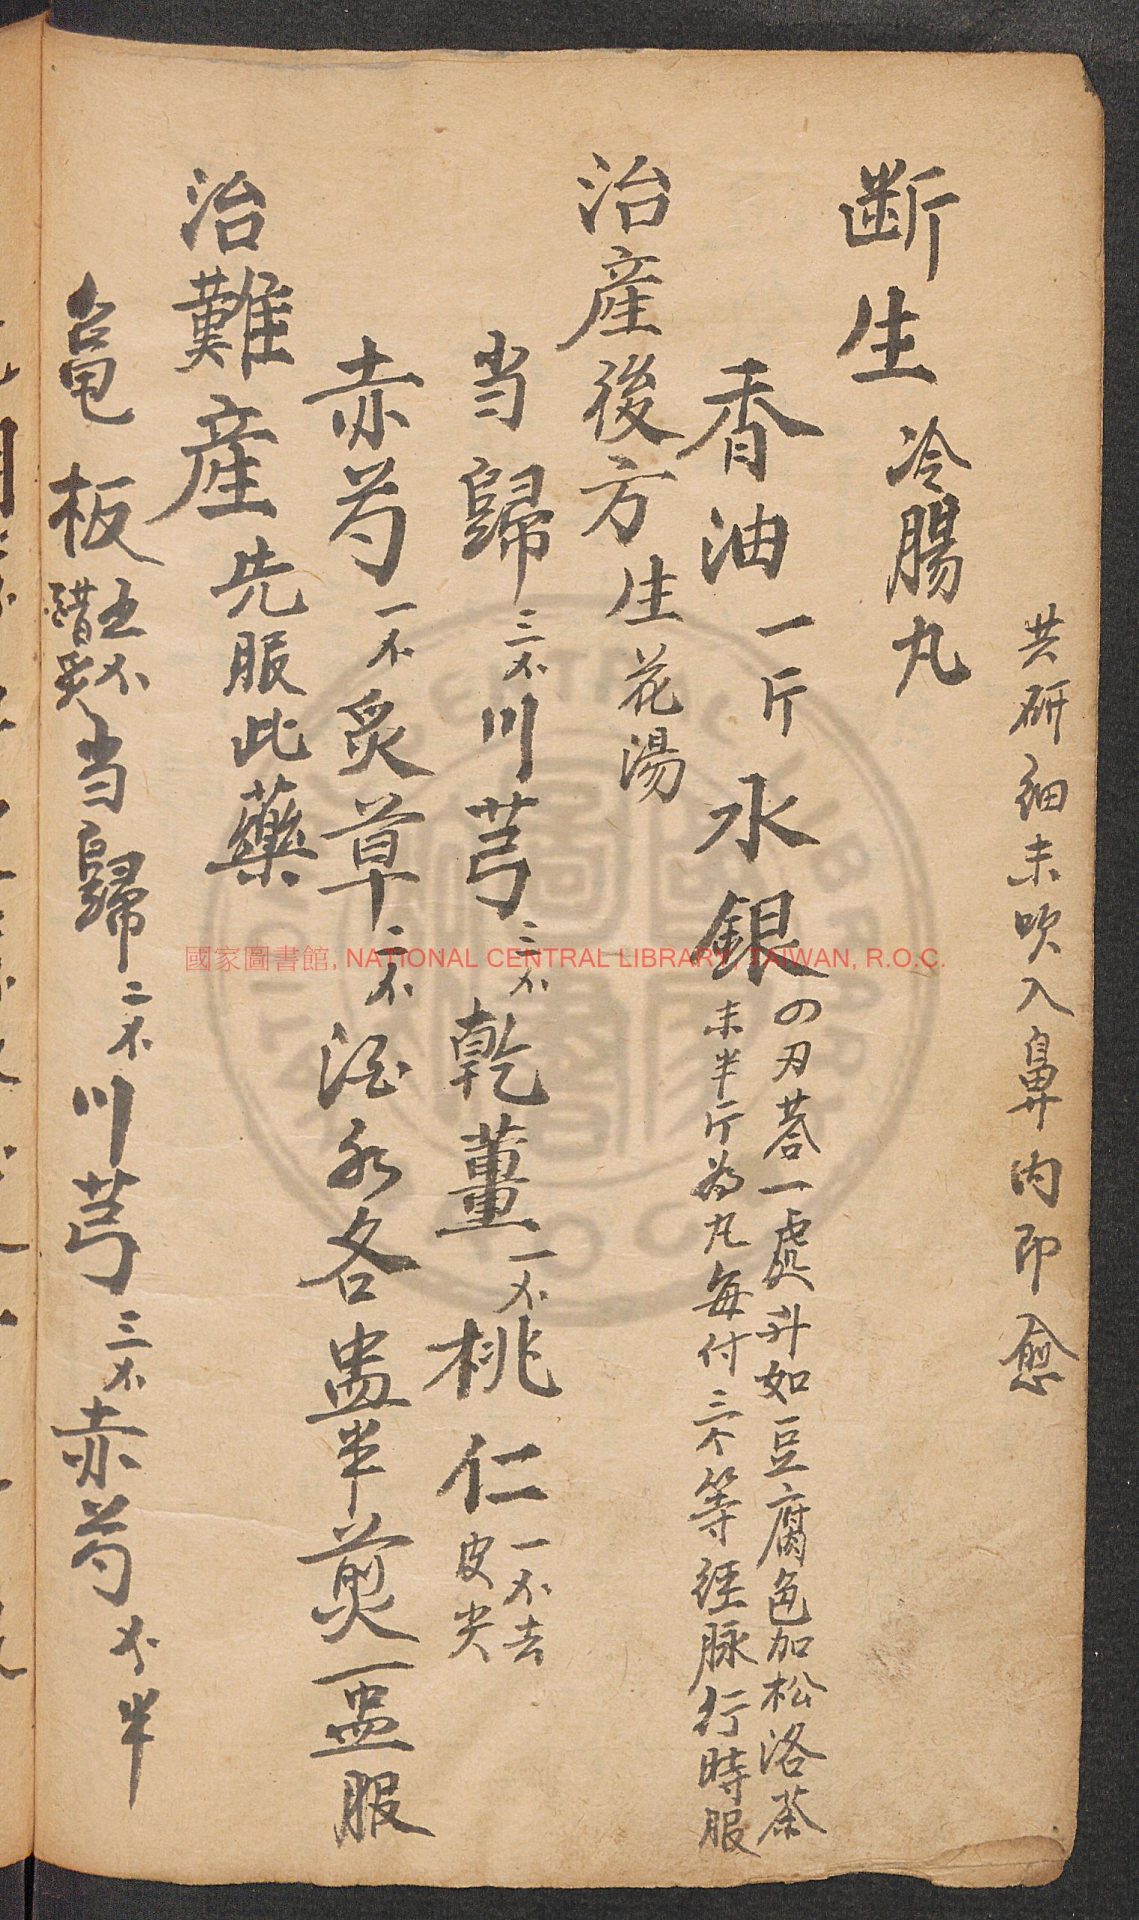 共研細末吹入鼻内即愈
断生冷腸丸
香油一斤水銀の刃荅一處升如豆腐色加松洛茶
末半斤為丸每付三个等經脉行時服
治產後方生花湯
当歸三不川芎三不乾薑一不桃仁一不去
皮尖
赤芍一不炙草二不酒水各盅半煎一盅服
治難產先服此藥
龟板五不
醋炙当歸二不川芎三不赤芍不半
國家圖書館, NATIONAL CENTRAL LIBRARY, TAIWAN, R.O.C.